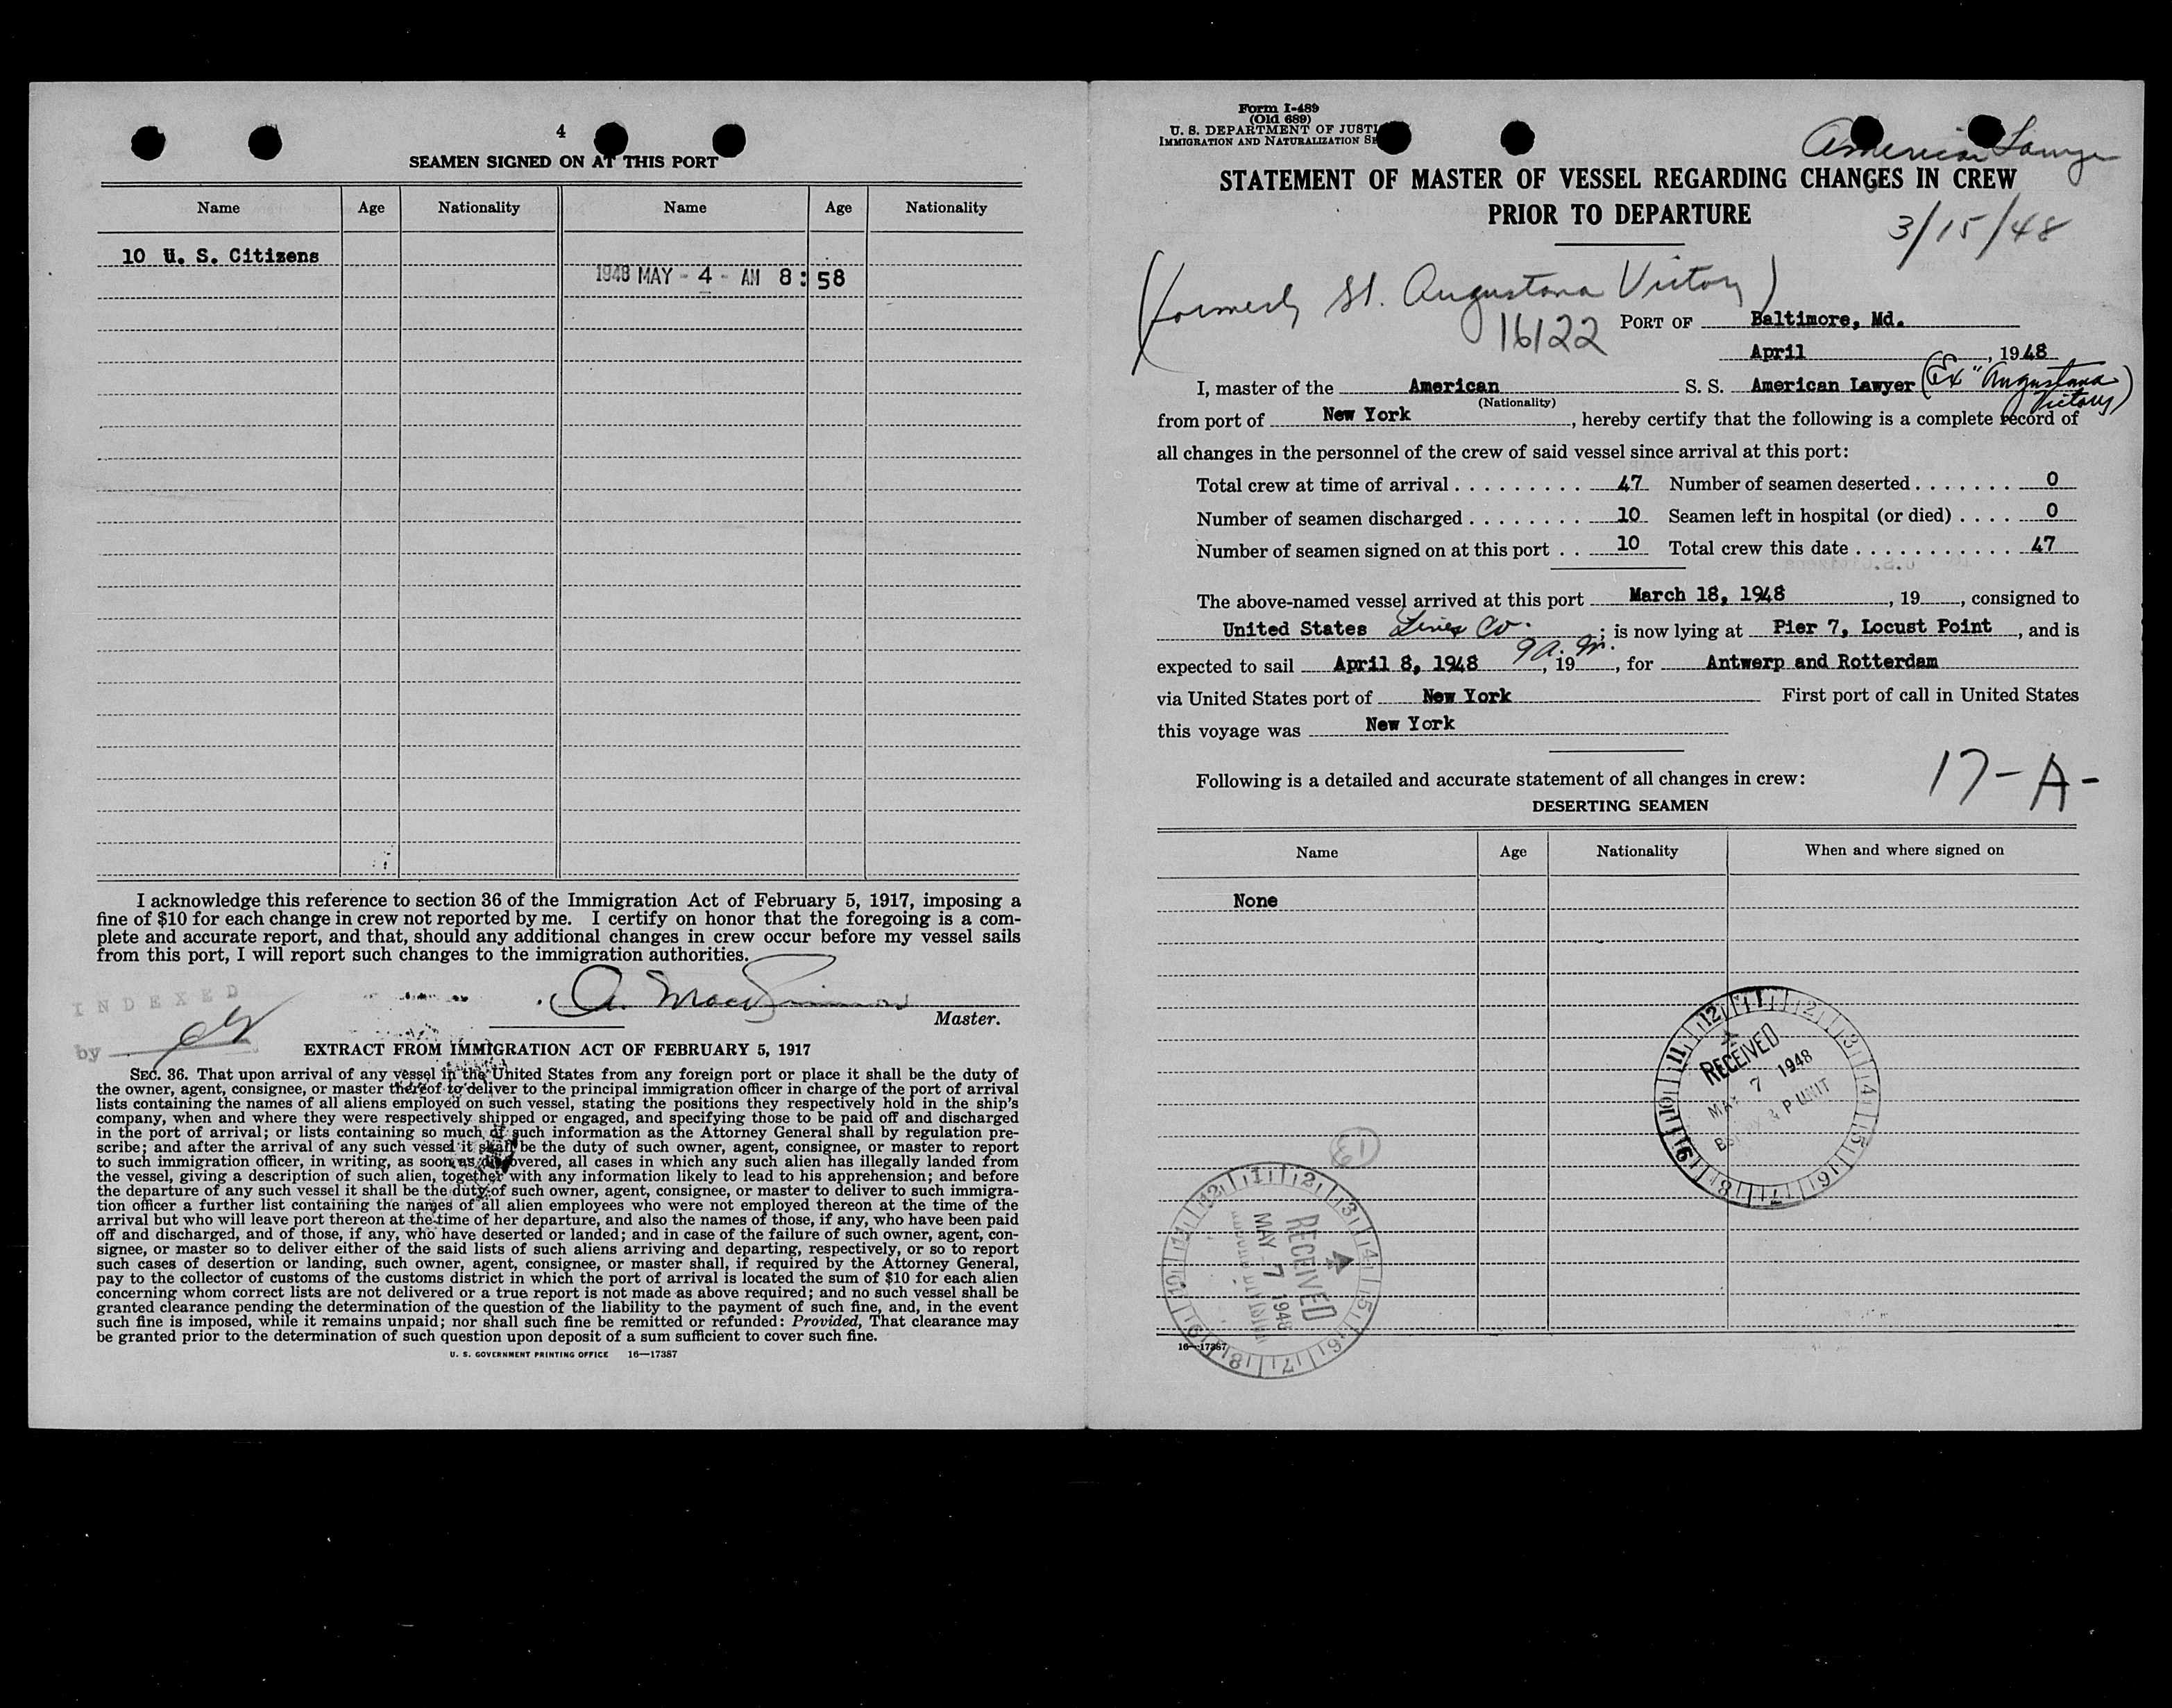 4
SEAMEN SIGNED ON AT THIS PORT
Name Age Nationality Name Age Nationality
10 U. S. Citizens
1948 MAY - 4 - AM 8:58
I acknowledge this reference to section 36 of the Immigration Act of February 5, 1917, imposing a
fine of $10 for each change in crew not reported by me. I certify on honor that the foregoing is a com-
plete and accurate report, and that, should any additional changes in crew occur before my vessel sails
from this port, I will report such changes to the immigration authorities.
INDEXED
by
Master.
EXTRACT FROM IMMIGRATION ACT OF FEBRUARY 5, 1917
SEC. 36. That upon arrival of any vessel in the United States from any foreign port or place it shall be the duty of
the owner, agent, consignee, or master thereof to deliver to the principal immigration officer in charge of the port of arrival
lists containing the names of all aliens employed on such vessel, stating the positions they respectively hold in the ship's
company, when and where they were respectively shipped or engaged, and specifying those to be paid off and discharged
in the port of arrival; or lists containing so much of such information as the Attorney General shall by regulation pre-
scribe; and after the arrival of any such vessel it shall be the duty of such owner, agent, consignee, or master to report
to such immigration officer, in writing, as soon as discovered, all cases in which any such alien has illegally landed from
the vessel, giving a description of such alien, together with any information likely to lead to his apprehension; and before
the departure of any such vessel it shall be the duty of such owner, agent, consignee, or master to deliver to such immigra-
tion officer a further list containing the names of all alien employees who were not employed thereon at the time of the
arrival but who will leave port thereon at the time of her departure, and also the names of those, if any, who have been paid
off and discharged, and of those, if any, who have deserted or landed; and in case of the failure of such owner, agent, con-
signee, or master so to deliver either of the said lists of such aliens arriving and departing, respectively, or so to report
such cases of desertion or landing, such owner, agent, consignee, or master shall, if required by the Attorney General,
pay to the collector of customs of the customs district in which the port of arrival is located the sum of $10 for each alien
concerning whom correct lists are not delivered or a true report is not made as above required; and no such vessel shall be
granted clearance pending the determination of the question of the liability to the payment of such fine, and, in the event
such fine is imposed, while it remains unpaid; nor shall such fine be remitted or refunded: Provided, That clearance may
be granted prior to the determination of such question upon deposit of a sum sufficient to cover such fine.
U. S. GOVERNMENT PRINTING OFFICE 16—17387
Form I-489
(Old 689)
U. S. DEPARTMENT OF JUSTI
IMMIGRATION AND NATURALIZATION SE
American Lawyer
STATEMENT OF MASTER OF VESSEL REGARDING CHANGES IN CREW
PRIOR TO DEPARTURE
3/15/48
(formerly St. Augustana Victory)
16122
PORT OF Baltimore, Md.
April , 1948
I, master of the American S. S. American Lawyer (Ex "Augustana Victory)
(Nationality)
from port of New York , hereby certify that the following is a complete record of
all changes in the personnel of the crew of said vessel since arrival at this port:
Total crew at time of arrival . . . . . . . . . . 47 Number of seamen deserted . . . . . . . 0
Number of seamen discharged . . . . . . . . 10 Seamen left in hospital (or died) . . . . 0
Number of seamen signed on at this port . . 10 Total crew this date . . . . . . . . . . . . 47
The above-named vessel arrived at this port March 18, 1948 , 19 , consigned to
United States Lines Co. ; is now lying at Pier 7, Locust Point , and is
expected to sail April 8, 1948 9 A.M. , 19 , for Antwerp and Rotterdam
via United States port of New York First port of call in United States
this voyage was New York
Following is a detailed and accurate statement of all changes in crew:
17-A-
DESERTING SEAMEN
Name Age Nationality When and where signed on
None
12 1 2 3 4 5 6 7 8 9 10 11
RECEIVED
7 1948
& P UNIT
13
12 1 2 3 4 5 6 7 8 9 10 11
RECEIVED
MAY 7 1948
16—17387